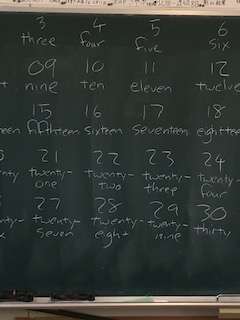 3 4 5 6
three four five six
09 10 11 12
nine ten eleven twelve
15 16 17 18
fifthteen sixteen seventeen eightteen
21 22 23 24
twenty- twenty- twenty- twenty-
one two three four
27 28 29 30
twenty- twenty- twenty- thirty
seven eight nine